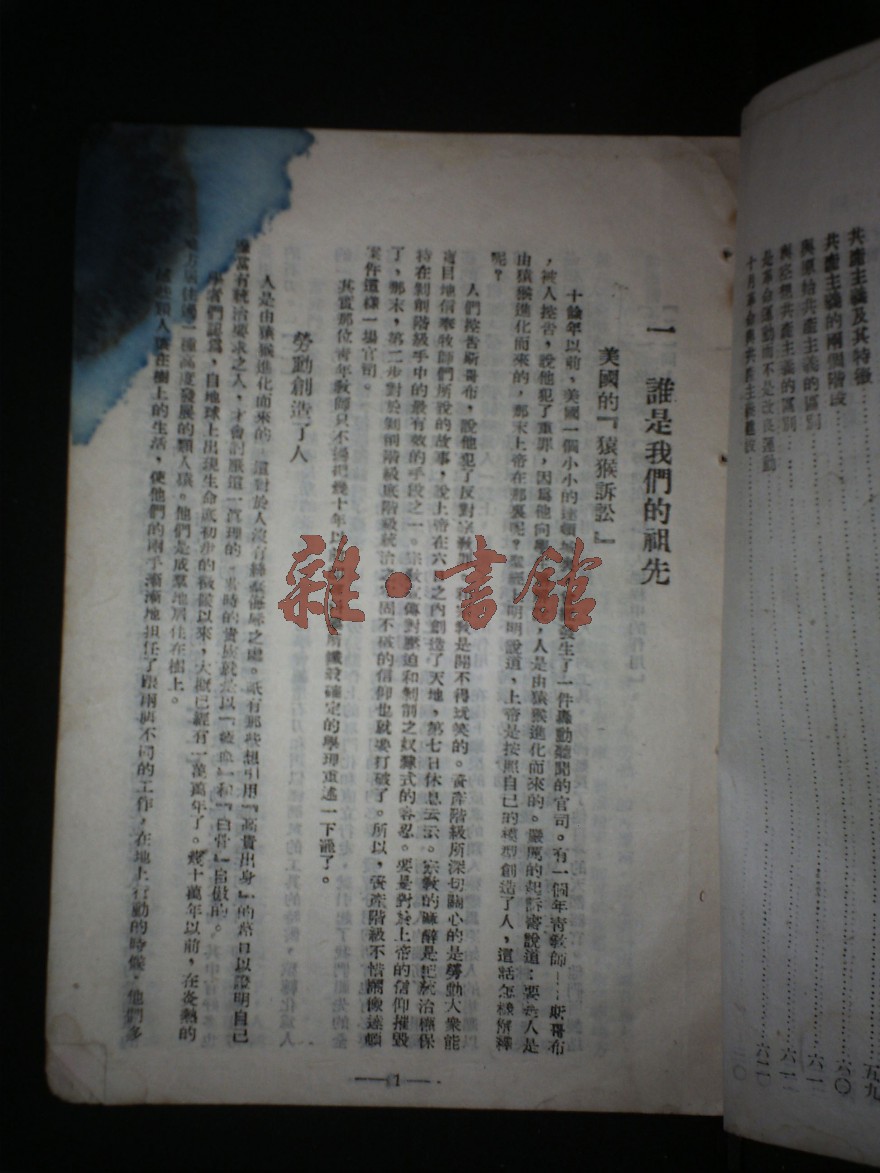 共產主義及其特徵 五九
共產主義的兩個階段 六〇
與原始共產主義的區別 六一
與空想共產主義的區別 六一
是革命運動而不是改良運動 六二
十月革命與共產主義建設
一 誰是我們的祖先
美國的『猿猴訴訟』
十餘年以前,美國一個小小的達頓城 發生了一件轟動聽聞的官司。有一個年青敎師——斯哥布
,被人控告,說他犯了重罪,因爲他向學 ,人是由猿猴進化而來的。嚴厲的起訴書說道:要是人是
由猿猴進化而來的,那末上帝在那裏呢?聖經上明明說道,上帝是按照自己的模型創造了人,這話怎樣解釋
呢?
人們控告斯哥布,說他犯了反對宗敎 敎是開不得玩笑的。資產階級所深切關心的是勞動大衆能
盲目地信奉牧師們所說的故事,說上帝在六日之內創造了天地,第七日休息云云。宗敎的麻醉是在統治
在剝削階級手中的最有效的手段之一。宗敎宣傳對壓迫和剝削之奴隸式的容忍。要是對於上帝的信仰摧毁
了,那末,第二步對於剝削階級底階級統治 固不破的信仰也就要打破了。所以,資產階級不惜鬧像達頓
案件這樣一場官司。
其實那位靑年敎師只不過把幾十年以前 確定的學理重述一下罷了。
勞動創造了人
人是由猿猴進化而來的 這對於人沒有絲毫侮辱之處。祇有那些想引用『高貴出身』的 以證明自己
應當有統治要求之人,才會討厭這一眞理的 時的貴族就是以『 』和『白骨』自傲的。
學者們認爲,自地球上出現生命底初步的徵候以來,大槪已經有一萬萬年了。幾十萬年以前,在炎熱的
地方居住過一種高度發展的類人猿。他們是成羣地居住在樹上。
這些類人猿在樹上的生活,使他們的兩手漸漸地担任了跟兩脚不同的工作,在地上行動的時候,他們多
1
雜·書館